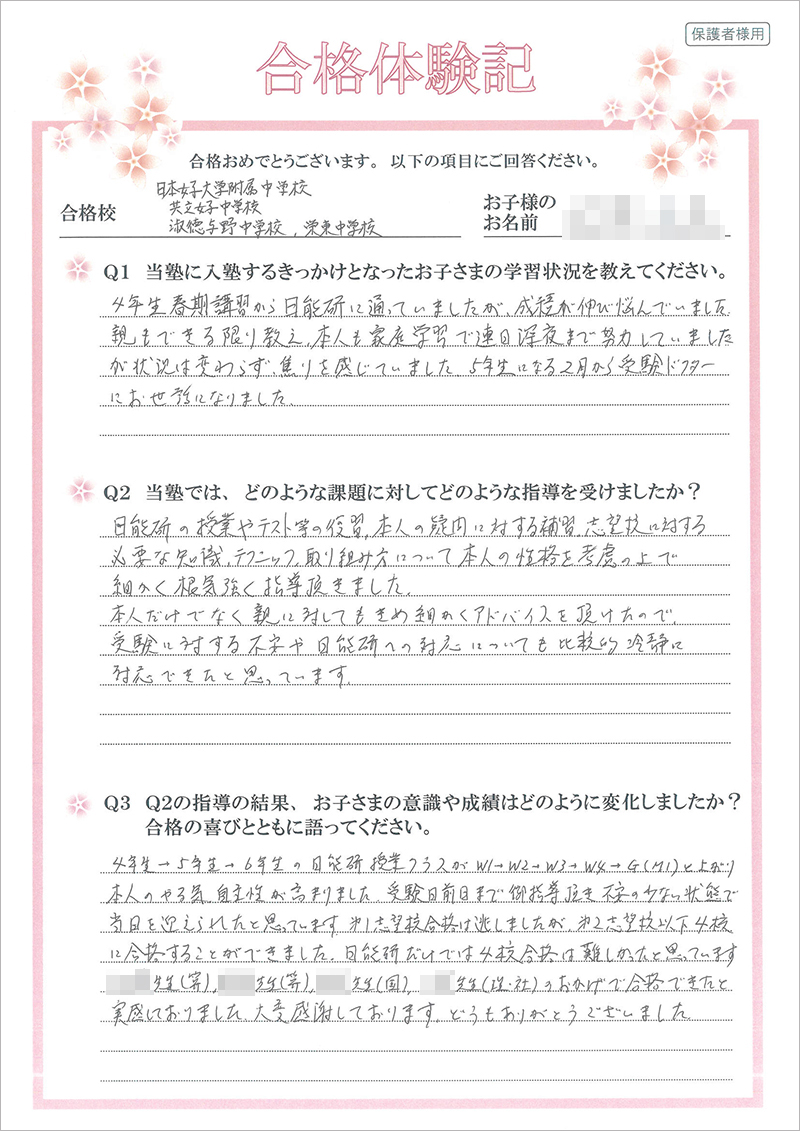 保護者様用
合格体験記
合格おめでとうございます。以下の項目にご回答ください。
合格校
日本女子大学附属中学校
共立女子中学校
淑徳与野中学校，栄東中学校
お子様の
お名前
Q1 当塾に入塾するきっかけとなったお子さまの学習状況を教えてください。
4年生春期講習から日能研に通っていましたが、成績が伸び悩んでいました。
親もできる限り教え、本人も家庭学習で連日深夜まで努力していました
が状況は変わらず、焦りを感じていました。5年生になる2月から受験ドクター
にお世話になりました。
Q2 当塾では、どのような課題に対してどのような指導を受けましたか？
日能研の授業やテスト等の復習、本人の疑問に対する補習、志望校に対する
必要な知識、テクニック、取り組み方について本人の性格を考慮の上で
細かく根気強く指導頂きました。
本人だけでなく親に対してもきめ細かくアドバイスを頂けたので、
受験に対する不安や日能研への対応についても比較的冷静に
対応できたと思っています。
Q3 Q2の指導の結果、お子さまの意識や成績はどのように変化しましたか？
合格の喜びとともに語ってください。
4年生→5年生→6年生の日能研授業クラスがW1→W2→W3→W4→G(M1)と上がり
本人のやる気、自主性が高まりました。受験日前日まで御指導頂き不安の少ない状態で
当日を迎えられたと思っています。第1志望校合格は逃しましたが、第2志望校以下4校
に合格することができました。日能研だけでは4校合格は難しかったと思っています
先生(算)，先生(算)，先生(国)，先生(理・社)のおかげで合格できたと
実感しておりました。大変感謝しております。どうもありがとうございました。